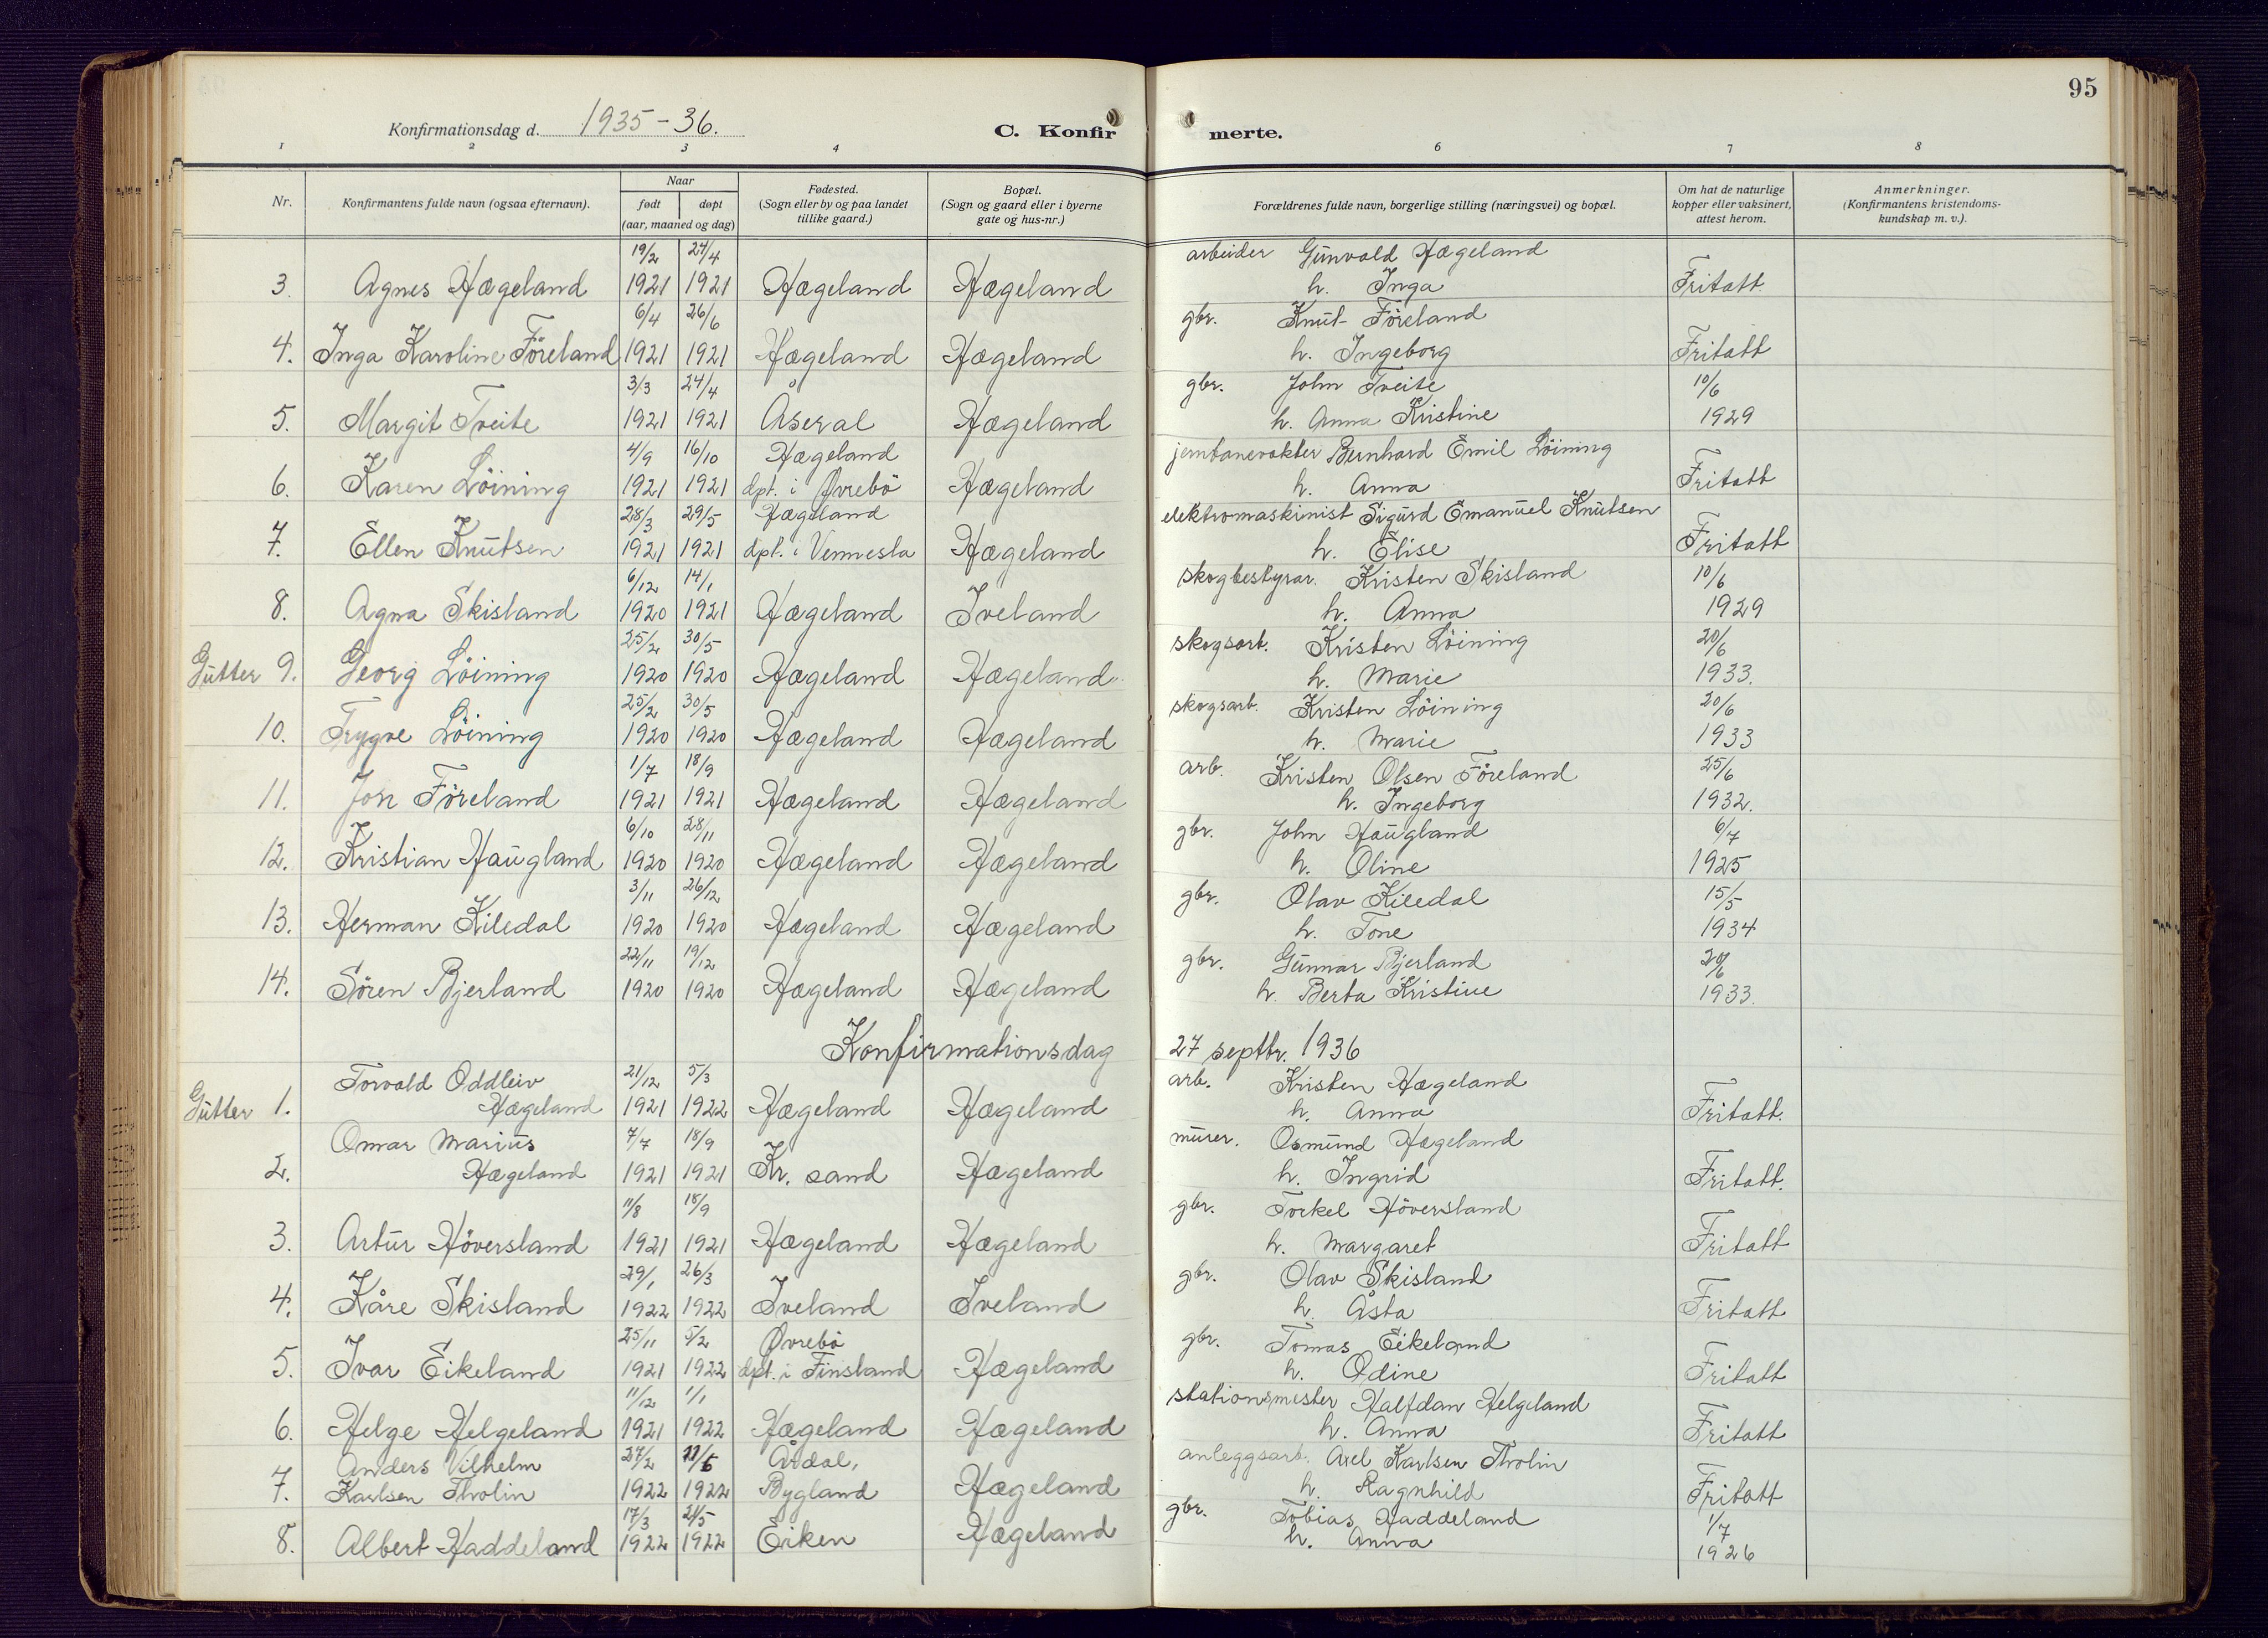 95
Konfirmationsdag d. 1935-36. C. Konfirmerte.
1 2 3 4 6 7 8
Nr.
Konfirmantens fulde navn (ogsaa efternavn).
Naar
født døpt
(aar, maaned og dag)
Fødested.
(Sogn eller by og paa landet
tillike gaard.)
Bopæl.
(Sogn og gaard eller i byerne
gate og hus-nr.)
Forældrenes fulde navn, borgerlige stilling (næringsvei) og bopæl.
Om hat de naturlige
kopper eller vaksinert,
attest herom.
Anmerkninger.
(Konfirmantens kristendoms-
kundskap m. v.).
19/2 24/4 arbeider Gunvald Hægeland
3. Agnes Hægeland 1921 1921 Hægeland Hægeland h. Inga Fritatt.
6/4 26/6 gbr. Knut Föreland
4. Inga Karoline Föreland 1921 1921 Hægeland Hægeland h. Ingeborg Fritatt
3/3 24/4 gbr. John Tveite 10/6
5. Margit Tveite 1921 1921 Åseral Hægeland h. Anna Kristine 1929
4/9 16/10 Hægeland jernbanevokter Bernhard Emil Löining
6. Karen Löining 1921 1921 dpt. i Øvrebö Hægeland h. Anna Fritatt
28/3 29/5 Hægeland elektromaskinist Sigurd Emanuel Knutsen
7. Ellen Knutsen 1921 1921 dpt. i Vennesla Hægeland h. Elise Fritatt
6/12 14/1 skogbestyrar. Kristen Skisland 10/6
8. Agna Skisland 1920 1921 Hægeland Iveland h. Anna 1929
25/2 30/5 skogsarb. Kristen Löining 20/6
Gutter 9. Georg Löining 1920 1920 Hægeland Hægeland h. Marie 1933.
25/2 30/5 skogsarb. Kristen Löining 20/6
10. Trygve Löining 1920 1920 Hægeland Hægeland h. Marie 1933
1/7 18/9 arb. Kristen Olsen Föreland 25/6
11. Jon Föreland 1921 1921 Hægeland Hægeland h. Ingeborg 1932.
6/10 28/11 gbr. John Haugland 6/7
12. Kristian Haugland 1920 1920 Hægeland Hægeland h. Oline 1925
3/11 26/12 gbr. Olav Kiledal 15/5
13. Herman Kiledal 1920 1920 Hægeland Hægeland h. Tone 1934
22/11 19/12 gbr. Gunnar Bjerland 20/6
14. Sören Bjerland 1920 1920 Hægeland Hægeland h. Berta Kristine 1933.
Konfirmationsdag 27 septbr. 1936
Torvald Oddleiv 21/12 5/3 arb. Kristen Hægeland
Gutter 1. Hægeland 1921 1922 Hægeland Hægeland h. Anna Fritatt.
Omar Marius 7/7 18/9 murer. Osmund Hægeland
2. Hægeland 1921 1921 Kr. sand Hægeland h. Ingrid Fritatt.
11/8 18/9 gbr. Torkel Höversland
3. Artur Höversland 1921 1921 Hægeland Hægeland h. Margaret Fritatt
29/1 26/3 gbr. Olav Skisland
4. Kåre Skisland 1922 1922 Iveland Iveland h. Åsta Fritatt
25/11 5/2 Øvrebö gbr. Tomas Eikeland
5. Ivar Eikeland 1921 1922 dpt. i Finsland Hægeland h. Odine Fritatt
11/12 1/1 stationsmester Halfdan Helgeland
6. Helge Helgeland 1921 1922 Hægeland Hægeland h. Anna Fritatt
Anders Vilhelm 27/2 Årdal, anleggsarb. Axel Karlsen Tholin
7. Karlsen Tholin 1922 1922 Bygland Hægeland h. Ragnhild Fritatt
17/3 21/5 gbr. Tobias Haddeland 1/7
8. Albert Haddeland 1922 1922 Eiken Hægeland h. Anna 1926